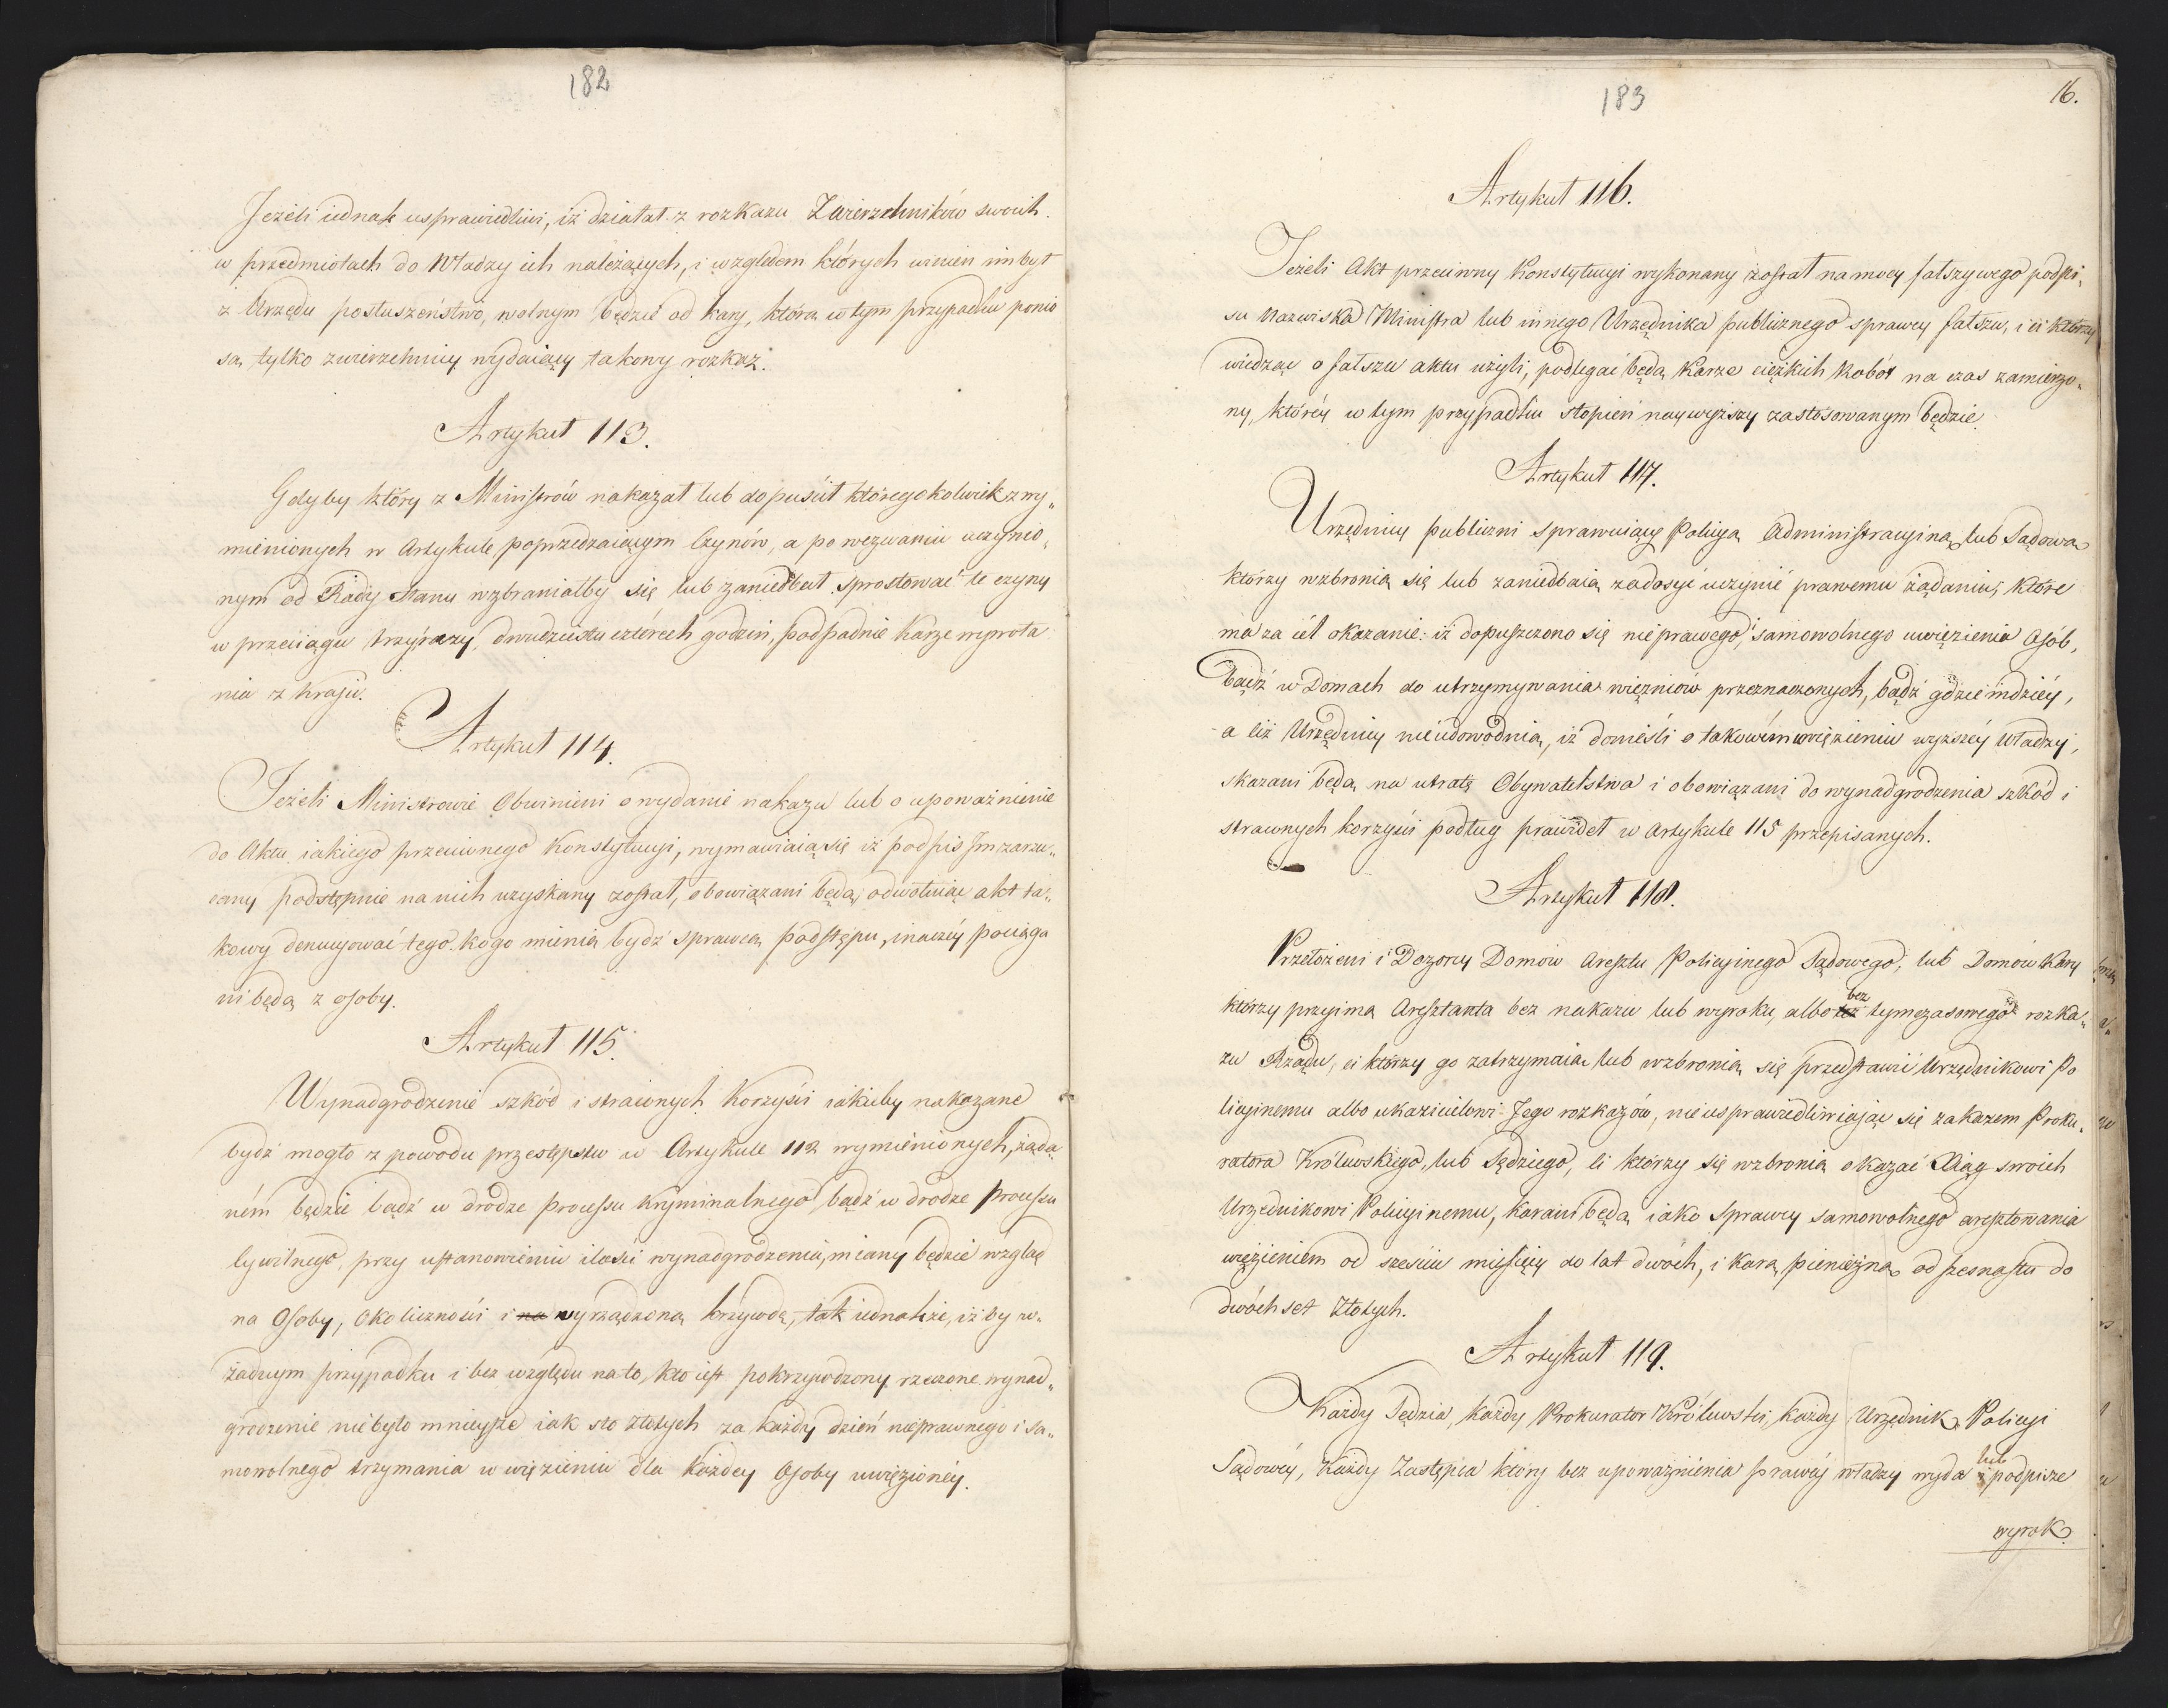 182
Jeżeli iednak usprawiedliwi, iż działał z rozkazu Zwierzchników swoich
w przedmiotach do Władzy ich należących, i względem których winien im był
z Urzędu posłuszeństwo, wolnym będzie od kary, którą w tym przypadku ponio
są tylko zwierzchnicy wydaiący takowy rozkaz.
Artykuł 113.
Gdyby który z Ministrów nakazał lub dopuścił któregokolwiek z wy„
mienionych w Artykule poprzedzaiącym Czynów, a po wezwaniu uczynio„
nym od Rady Stanu wzbraniałby się lub zaniedbał sprostować te czyny
w przeciągu trzy razy dwudziestu czterech godzin, podpadnie karze wywoła
nia z kraju.
Artykuł 114.
Jeżeli Ministrowie Obwinieni o wydanie nakazu lub o upoważnienie
do Aktu iakiego przeciwnego Konstytucyi, wymawiaią się iż podpis Im zarzu„
cany podstępnie na nich uzyskany został, obowiązani będą odwołuiąc akt ta„
kowy denuncyować tego kogo mienią bydź sprawcą podstępu, inaczéy pociąga
ni będą z osoby.
Artykuł 115.
Wynadgrodzenie szkód i straconych korzyści iakieby nakazane
bydź mogło z powodu przestępstw w Artykule 112 wymienionych, żąda
ném będzie bądź w drodze processu kryminalnego, bądź w drodze processu
Cywilnego, przy ustanowieniu ilości wynadgrodzenia, miany będzie wzgląd
na Osoby, okoliczności i na wyrządzoną krzywdę, tak iednakże, iżby w„
żadnym przypadku i bez względu na to, kto iest pokrzywdzony rzeczone wynad„
grodzenie nie było mnieysze iak sto złotych za każdy dzień nieprawnego i sa„
mowolnego trzymania w więzieniu dla każdey Osoby uwięzionéy.
183
16.
Artykuł 116.
Jeżeli Akt przeciwny Konstytucyi wykonany został na mocy fałszywego podpi„
su Nazwiska Ministra lub innego Urzędnika publicznego sprawcy fałszu, i ci którzy
wiedząc o fałszu aktu użyli, podlegać będą Karze ciężkich Robót na czas zamierzo„
ny, któréy w tym przypadku stopień naywyższy zastosowanym będzie.
Artykuł 117.
Urzędnicy publiczni sprawuiący Policyą Administracyiną lub Sądową
którzy wzbronią się lub zaniedbaią zadosyć uczynić prawemu żądaniu, które
ma za cél okazanie: iż dopuszczono się nieprawego, samowolnego uwięzienia Osób,
bądź w Domach do utrzymywania więzniów przeznaczonych, bądź gdzie indziéy,
a liż Urzędnicy nieudowodnią, iż donieśli o takowém uwięzieniu wyższéy władzy,
skazani będą na utratę Obywatelstwa i obowiązani do wynadgrodzenia szkód i
strawnych korzyści podług prawideł w Artykule 115 przepisanych.
Artykuł 118.
Przełożeni i Dozorcy Domów Aresztu Policyinego Sądowego, lub Domów Kary
którzy przyimą Aresztanta bez nakazu lub wyroku, albo bez tymczasowego rozka„
zu Rządu, ci którzy go zatrzymaią lub wzbronią się przedstawić Urzędnikowi Po
licyinemu albo ukazicielowi Jego rozkazów, nieusprawiedliwiając się zakazem Proku„
ratora Królewskiego, lub Sędziego, Ci którzy się wzbronią okazać Xiąg swoich
Urzędnikowi Policyinemu, karani będą iako Sprawcy samowolnego aresztowania
więzieniem od sześciu miesięcy do lat dwóch, i karą pieniężną od szesnastu do
dwóchset Złotych.
Artykuł 119.
Każdy Sędzia, każdy Prokurator Królewski, każdy Urzędnik Policyi
Sądowéy, każdy Zastępca który bez upoważnienia prawéy władzy wyda lub podpisze
wyrok